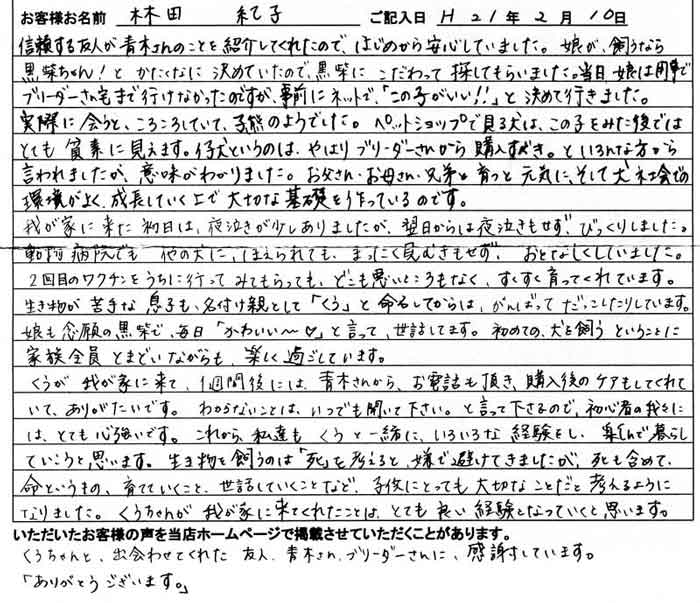 お客様お名前 林田 紀子 ご記入日 H 21年 2月 10日
信頼する友人が青木さんのことを紹介してくれたので、はじめから安心していました。娘が、飼うなら
黒柴ちゃん！とかたくなに決めていたので、黒柴にこだわって探してもらいました。当日娘は用事で
ブリーダーさん宅まで行けなかったのですが、事前にネットで、「この子がいい!!」と決めて行きました。
実際に会うと、ころころしていて、子熊のようでした。ペットショップで見る犬は、この子をみた後では
とても貧素に見えます。仔犬というのは、やはりブリーダーさんから購入すべき。といろんな方から
言われましたが、意味がわかりました。お父さん・お母さん・兄弟と育つと元気に、そして犬社会での
環境がよく、成長していく上で大切な基礎を作っているのです。
我が家に来た初日は、夜泣きが少しありましたが、翌日からは夜泣きもせず、びっくりしました。
動物病院でも他の犬に、ほえられても、まったく見むきもせず、おとなしくしていました。
2回目のワクチンをうちに行ってみてもらっても、どこも悪いところもなく、すくすく育ってくれています。
生き物が苦手な息子も、名付け親として「くう」と命名してからは、がんばってだっこしたりしています。
娘も念願の黒柴で、毎日「かわいい〜♡」と言って、世話してます。初めての、犬を飼うということに
家族全員とまどいながらも、楽しく過ごしています。
くうが我が家に来て、1週間後には、青木さんから、お電話も頂き、購入後のケアもしてくれて
いて、ありがたいです。わからないことは、いつでも聞いて下さい。と言って下さるので、初心者の我々に
は、とても心強いです。これから、私達もくうと一緒に、いろいろな経験をし、楽しんで暮らし
ていこうと思います。生き物を飼うのは「死」を考えると、嫌で避けてきましたが、死も含めて、
命というもの、育てていくこと、世話していくことなど、子供にとっても大切なことだと考えるように
なりました。くうちゃんが我が家に来てくれたことは、とても良い経験となっていくと思います。
いただいたお客様の声を当店ホームページで掲載させていただくことがあります。
くうちゃんと、出会わせてくれた友人、青木さん、ブリーダーさんに、感謝しています。
「ありがとうございます。」